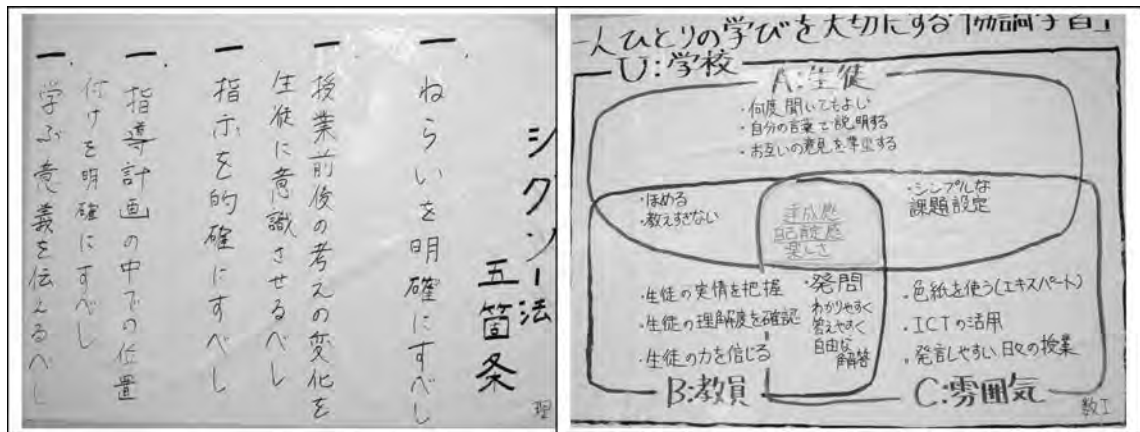 ジグソー法
五箇条
一、ねらいを明確にすべし
一、授業前後の考えの変化を
生徒に意識させるべし
一、指示を的確にすべし
一、指導計画の中での位置
付けを明確にすべし
一、学ぶ意義を伝えるべし
理
一人ひとりの学びを大切にする「協調学習」
U:学校
A:生徒
・何度聞いてもよい
・自分の言葉で説明する
・お互いの意見を尊重する
・ほめる
・教えすぎない
達成感
自己肯定感
楽しさ
・シンプルな
課題設定
・生徒の実情を把握
・生徒の理解度を確認
・生徒の力を信じる
・発問
わかりやすく
答えやすく
自由な
解答
・色紙を使う(エキスパート)
・ICTの活用
・発言しやすい日々の授業
B:教員
C:雰囲気
数工